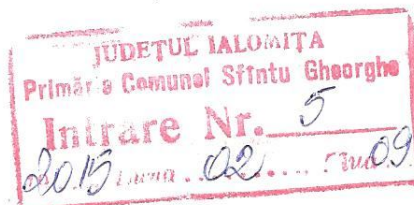 JUDEŢUL IALOMIŢA
Primăria Comunei Sfîntu Gheorghe
Intrare Nr. 5
2015 Luna 02 Ziua 09